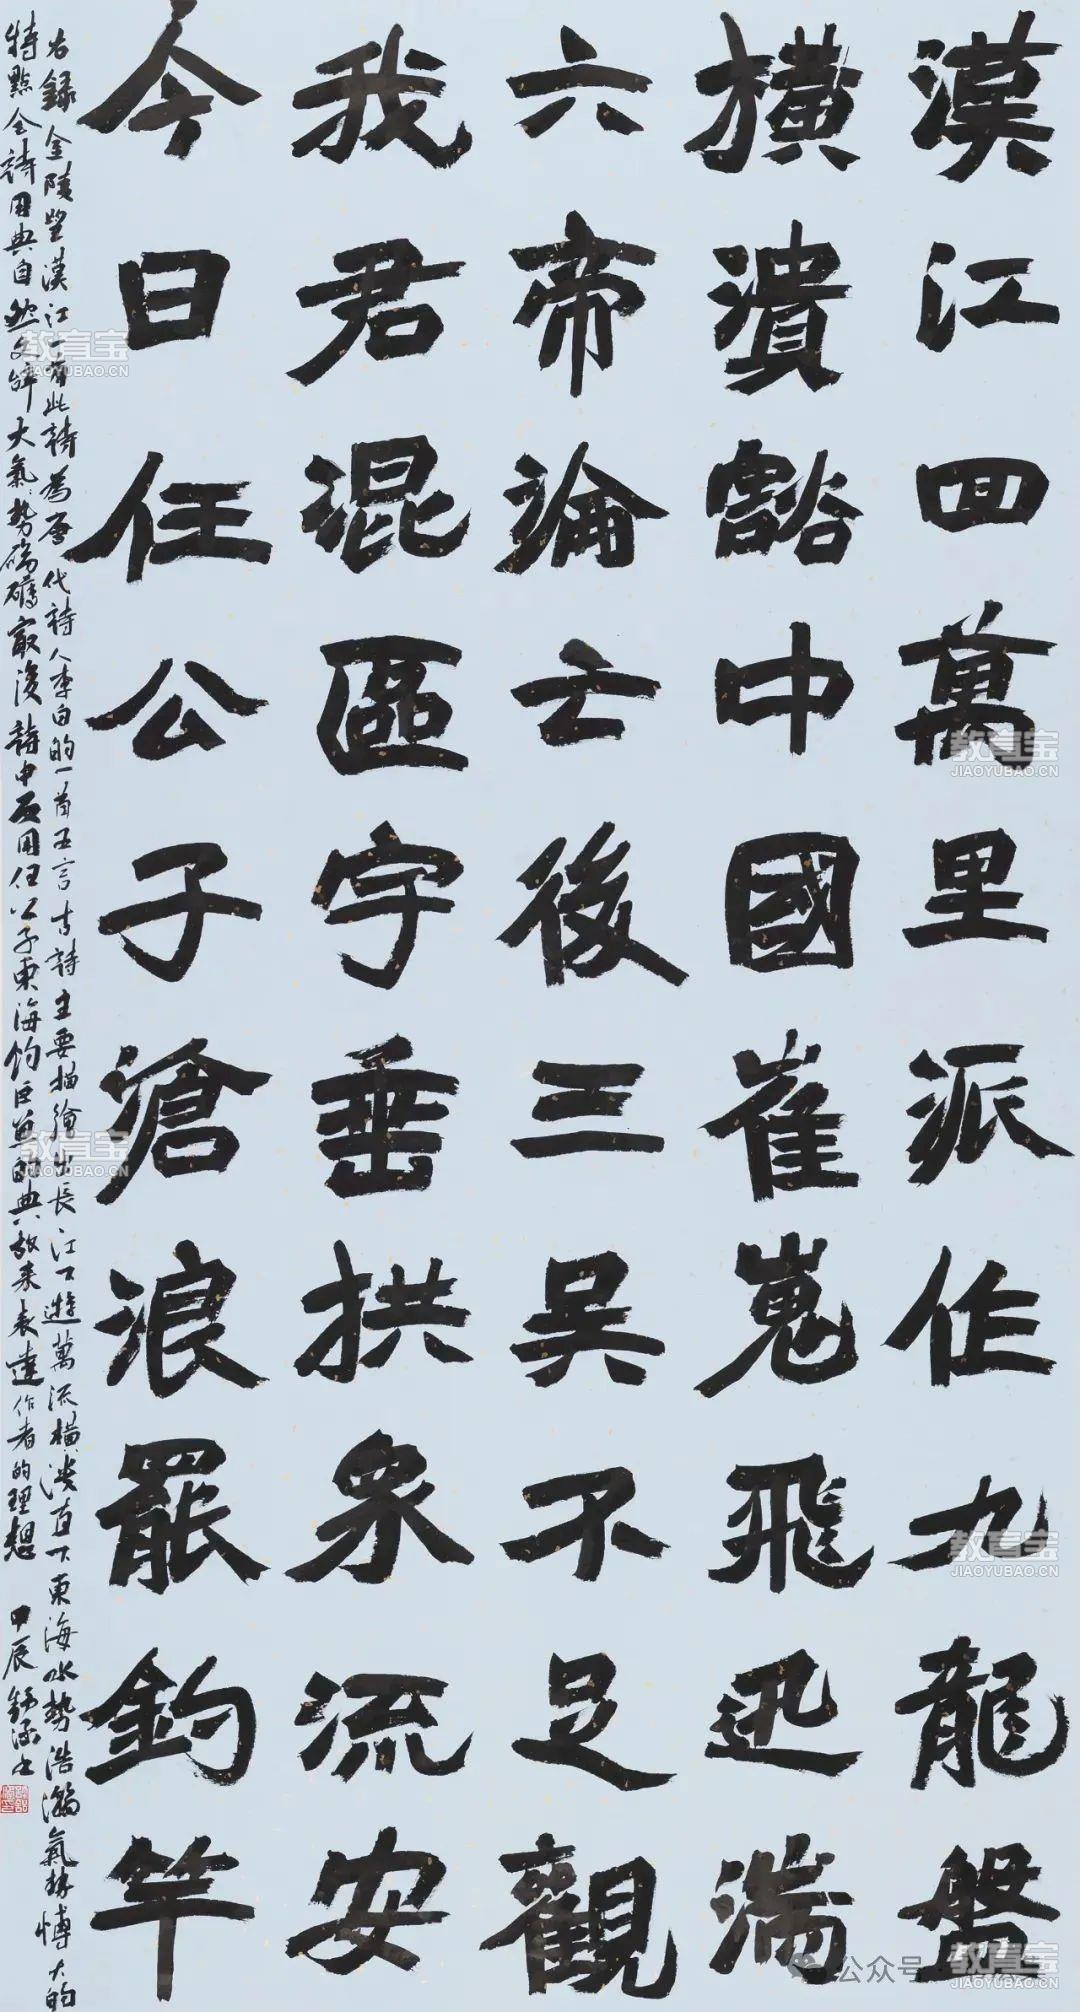 漢江回萬里派作九龍盤
橫潰豁中國崔嵬飛迅湍
六帝淪亡後三吳不足觀
我君混區宇垂拱衆流安
今日任公子滄浪罷釣竿
右錄金陵望漢江一首此詩為唐代詩人李白的一首五言古詩主要描繪出長江下遊萬流橫潰直下東海水勢浩瀚氣勢愽大的
特點全詩用典自然文辭大氣勢磅礴最後詩中反用任公子東海釣巨魚的典故来表達作者的理想 甲辰
教育宝
JIAOYUBAO.CN
教育宝
JIAOYUBAO.CN
教育宝
JIAOYUBAO.CN
教育宝
JIAOYUBAO.CN
公众号
教育宝
JIAOYUBAO.CN